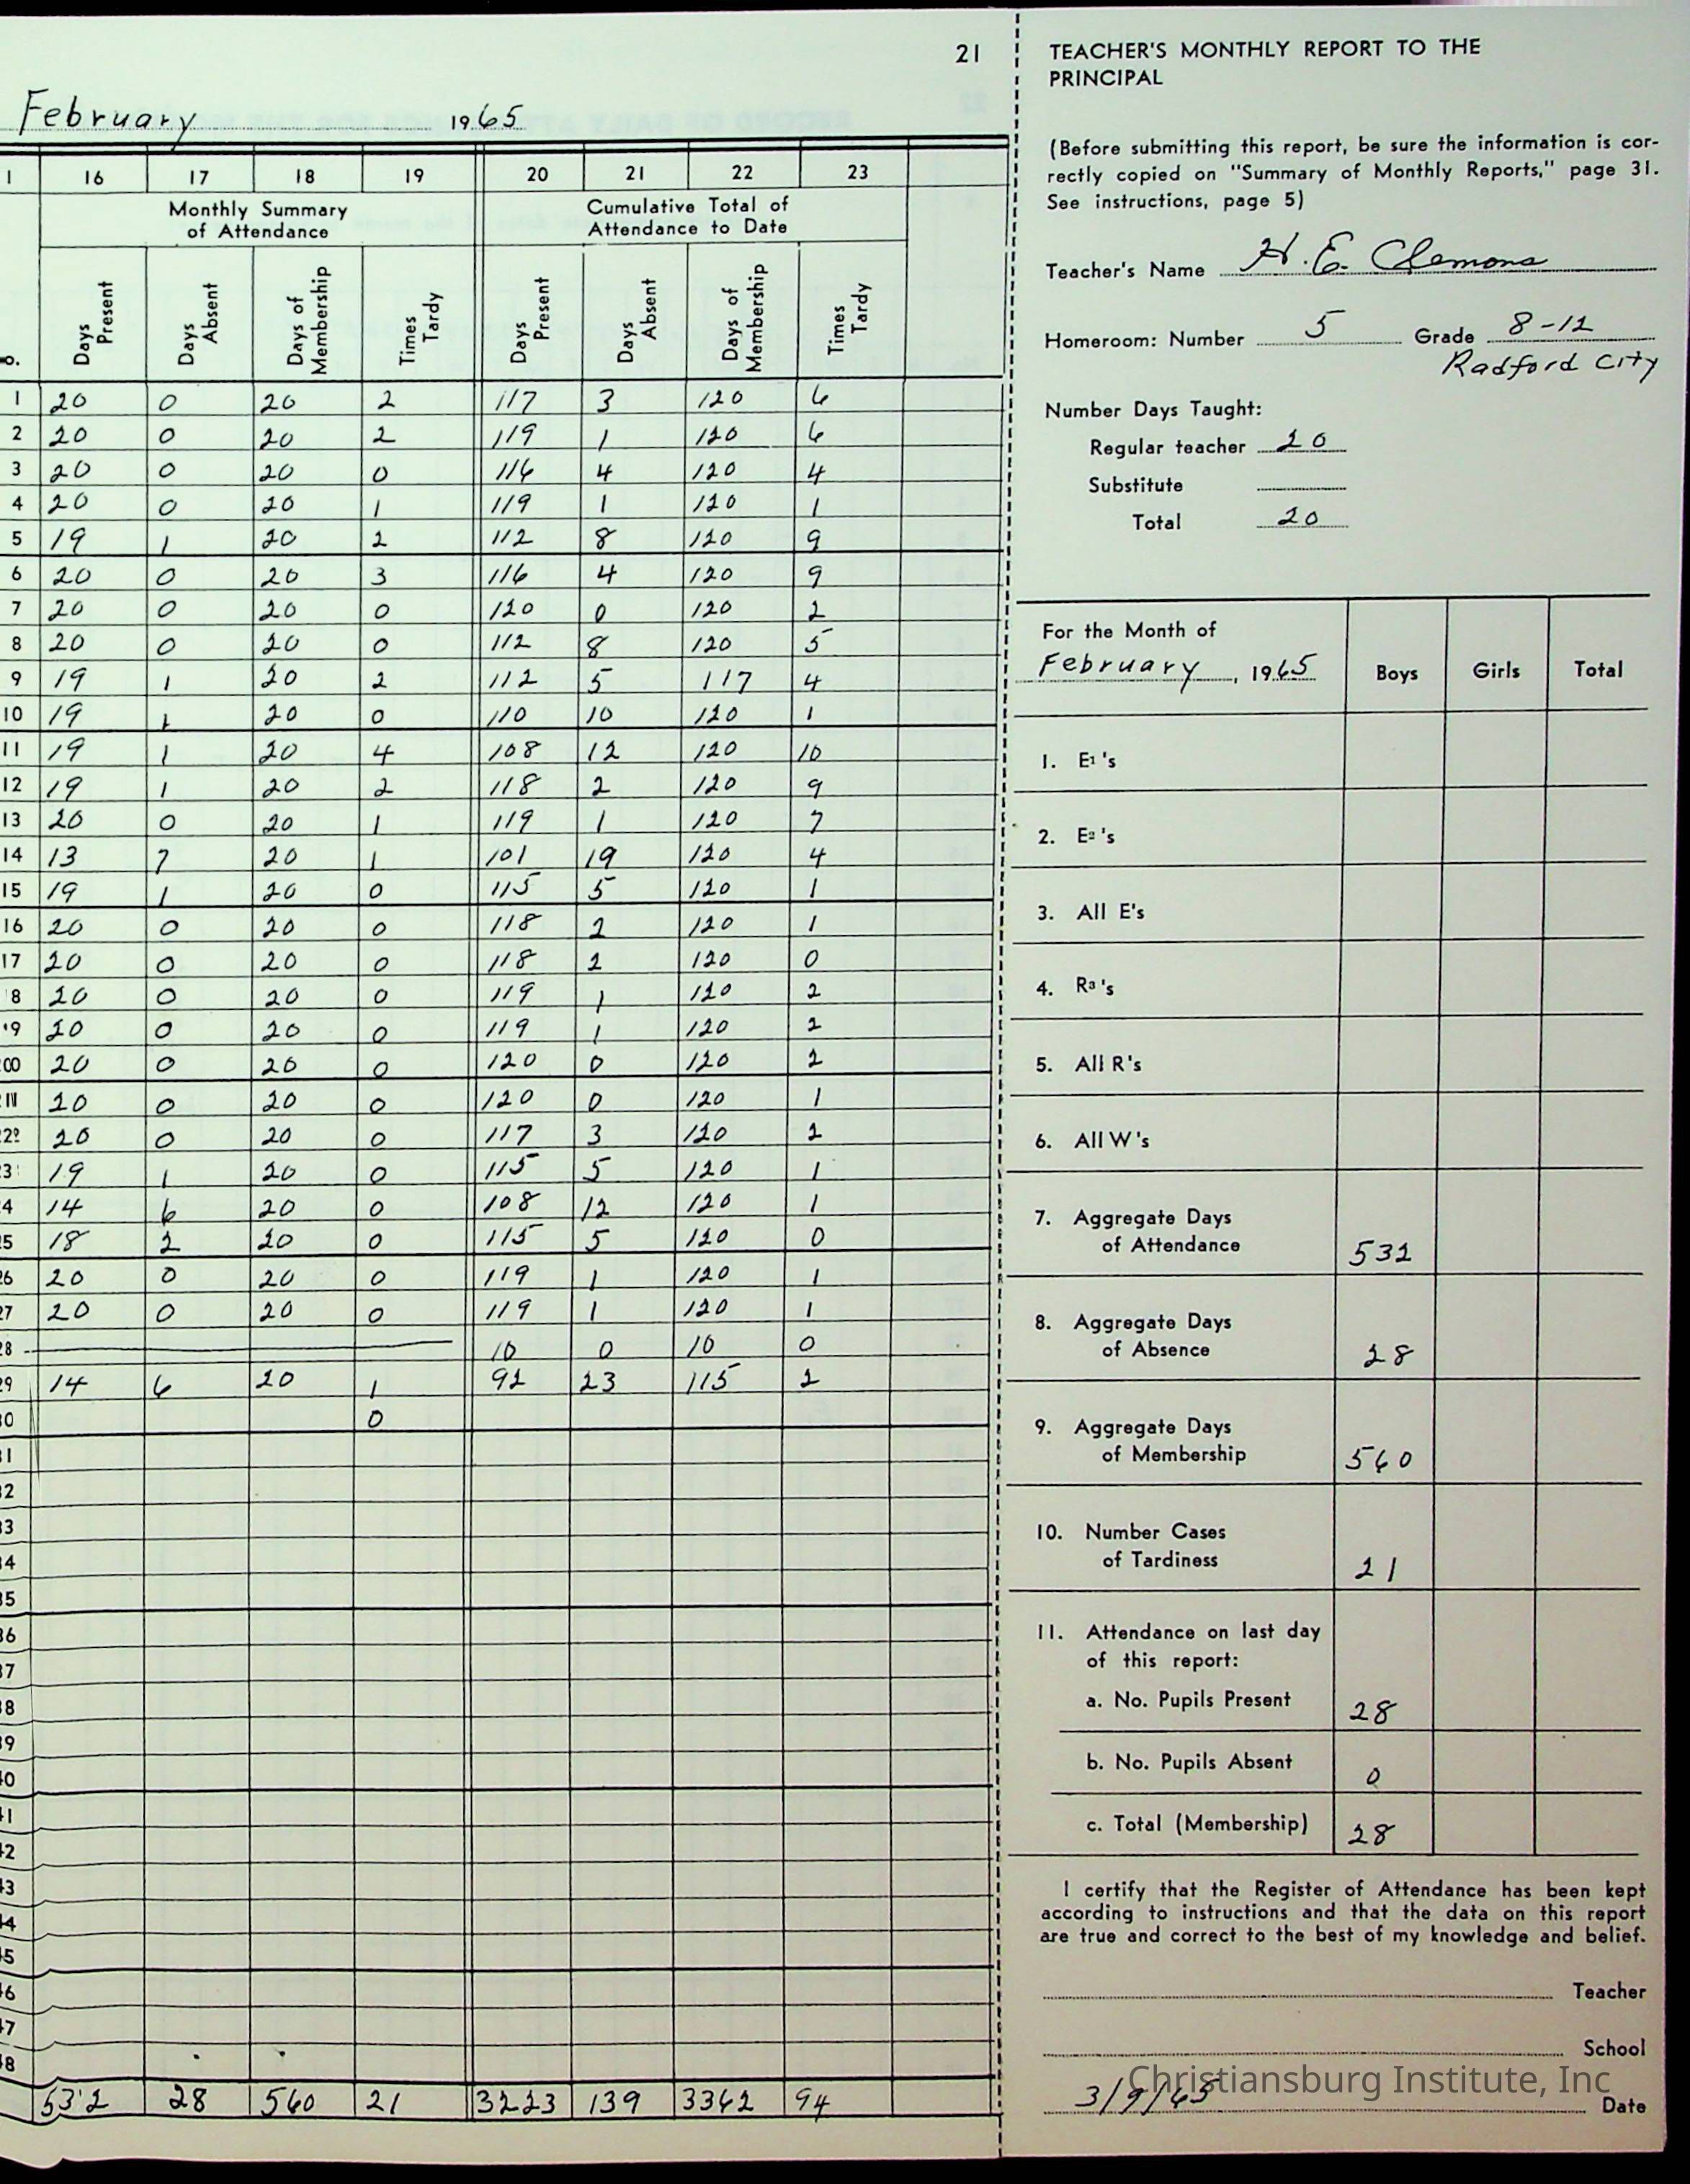 21
February 1965
1 16 17 18 19 20 21 22 23
Monthly Summary of Attendance Cumulative Total of Attendance to Date
o. Days Present Days Absent Days of Membership Times Tardy Days Present Days Absent Days of Membership Times Tardy
1 20 0 20 2 117 3 120 6
2 20 0 20 2 119 1 120 6
3 20 0 20 0 116 4 120 4
4 20 0 20 1 119 1 120 1
5 19 1 20 2 112 8 120 9
6 20 0 20 3 116 4 120 9
7 20 0 20 0 120 0 120 2
8 20 0 20 0 112 8 120 5
9 19 1 20 2 112 5 117 4
10 19 1 20 0 110 10 120 1
11 19 1 20 4 108 12 120 10
12 19 1 20 2 118 2 120 9
13 20 0 20 1 119 1 120 7
14 13 7 20 1 101 19 120 4
15 19 1 20 0 115 5 120 1
16 20 0 20 0 118 2 120 1
17 20 0 20 0 118 2 120 0
18 20 0 20 0 119 1 120 2
19 20 0 20 0 119 1 120 2
20 0 20 0 120 0 120 2
20 0 20 0 120 0 120 1
22 20 0 20 0 117 3 120 2
3 19 1 20 0 115 5 120 1
4 14 6 20 0 108 12 120 1
25 18 2 20 0 115 5 120 0
26 20 0 20 0 119 1 120 1
27 20 0 20 0 119 1 120 1
28 10 0 10 0
29 14 6 20 1 92 23 115 2
30 0
31
32
33
34
35
36
37
38
39
40
41
42
43
44
45
46
47
48
532 28 560 21 3223 139 3362 94
TEACHER'S MONTHLY REPORT TO THE
PRINCIPAL
(Before submitting this report, be sure the information is cor-
rectly copied on "Summary of Monthly Reports," page 31.
See instructions, page 5)
Teacher's Name H. E. Clemons
Homeroom: Number 5 Grade 8-12
Radford City
Number Days Taught:
Regular teacher 20
Substitute
Total 20
For the Month of
February, 1965 Boys Girls Total
1. E1's
2. E2's
3. All E's
4. R3's
5. All R's
6. All W's
7. Aggregate Days
of Attendance 532
8. Aggregate Days
of Absence 28
9. Aggregate Days
of Membership 560
10. Number Cases
of Tardiness 21
11. Attendance on last day
of this report:
a. No. Pupils Present 28
b. No. Pupils Absent 0
c. Total (Membership) 28
I certify that the Register of Attendance has been kept
according to instructions and that the data on this report
are true and correct to the best of my knowledge and belief.
Teacher
School
Christiansburg Institute, Inc
3/9/65 Date